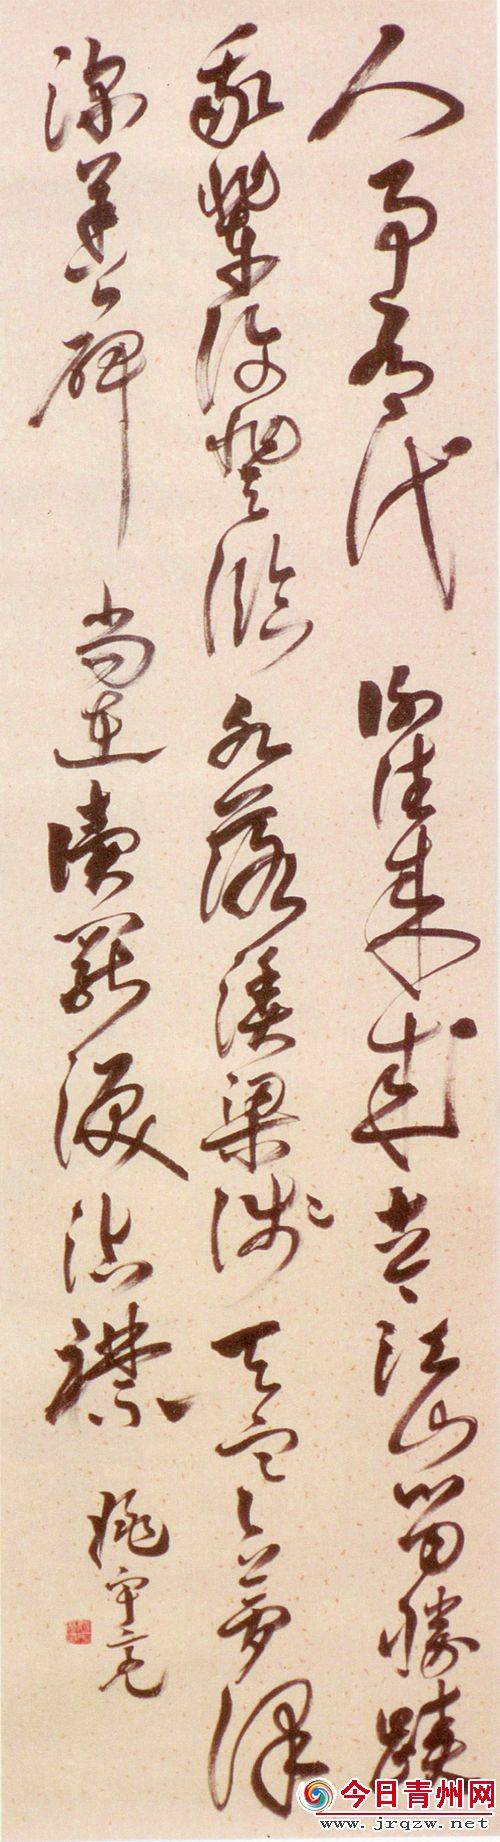 人事有代謝往来成古今江山留勝蹟
我輩復登臨水落漁梁淺天寒夢澤
深羊公碑尚在讀罷淚沾襟
今日青州网
www.jrqzw.net